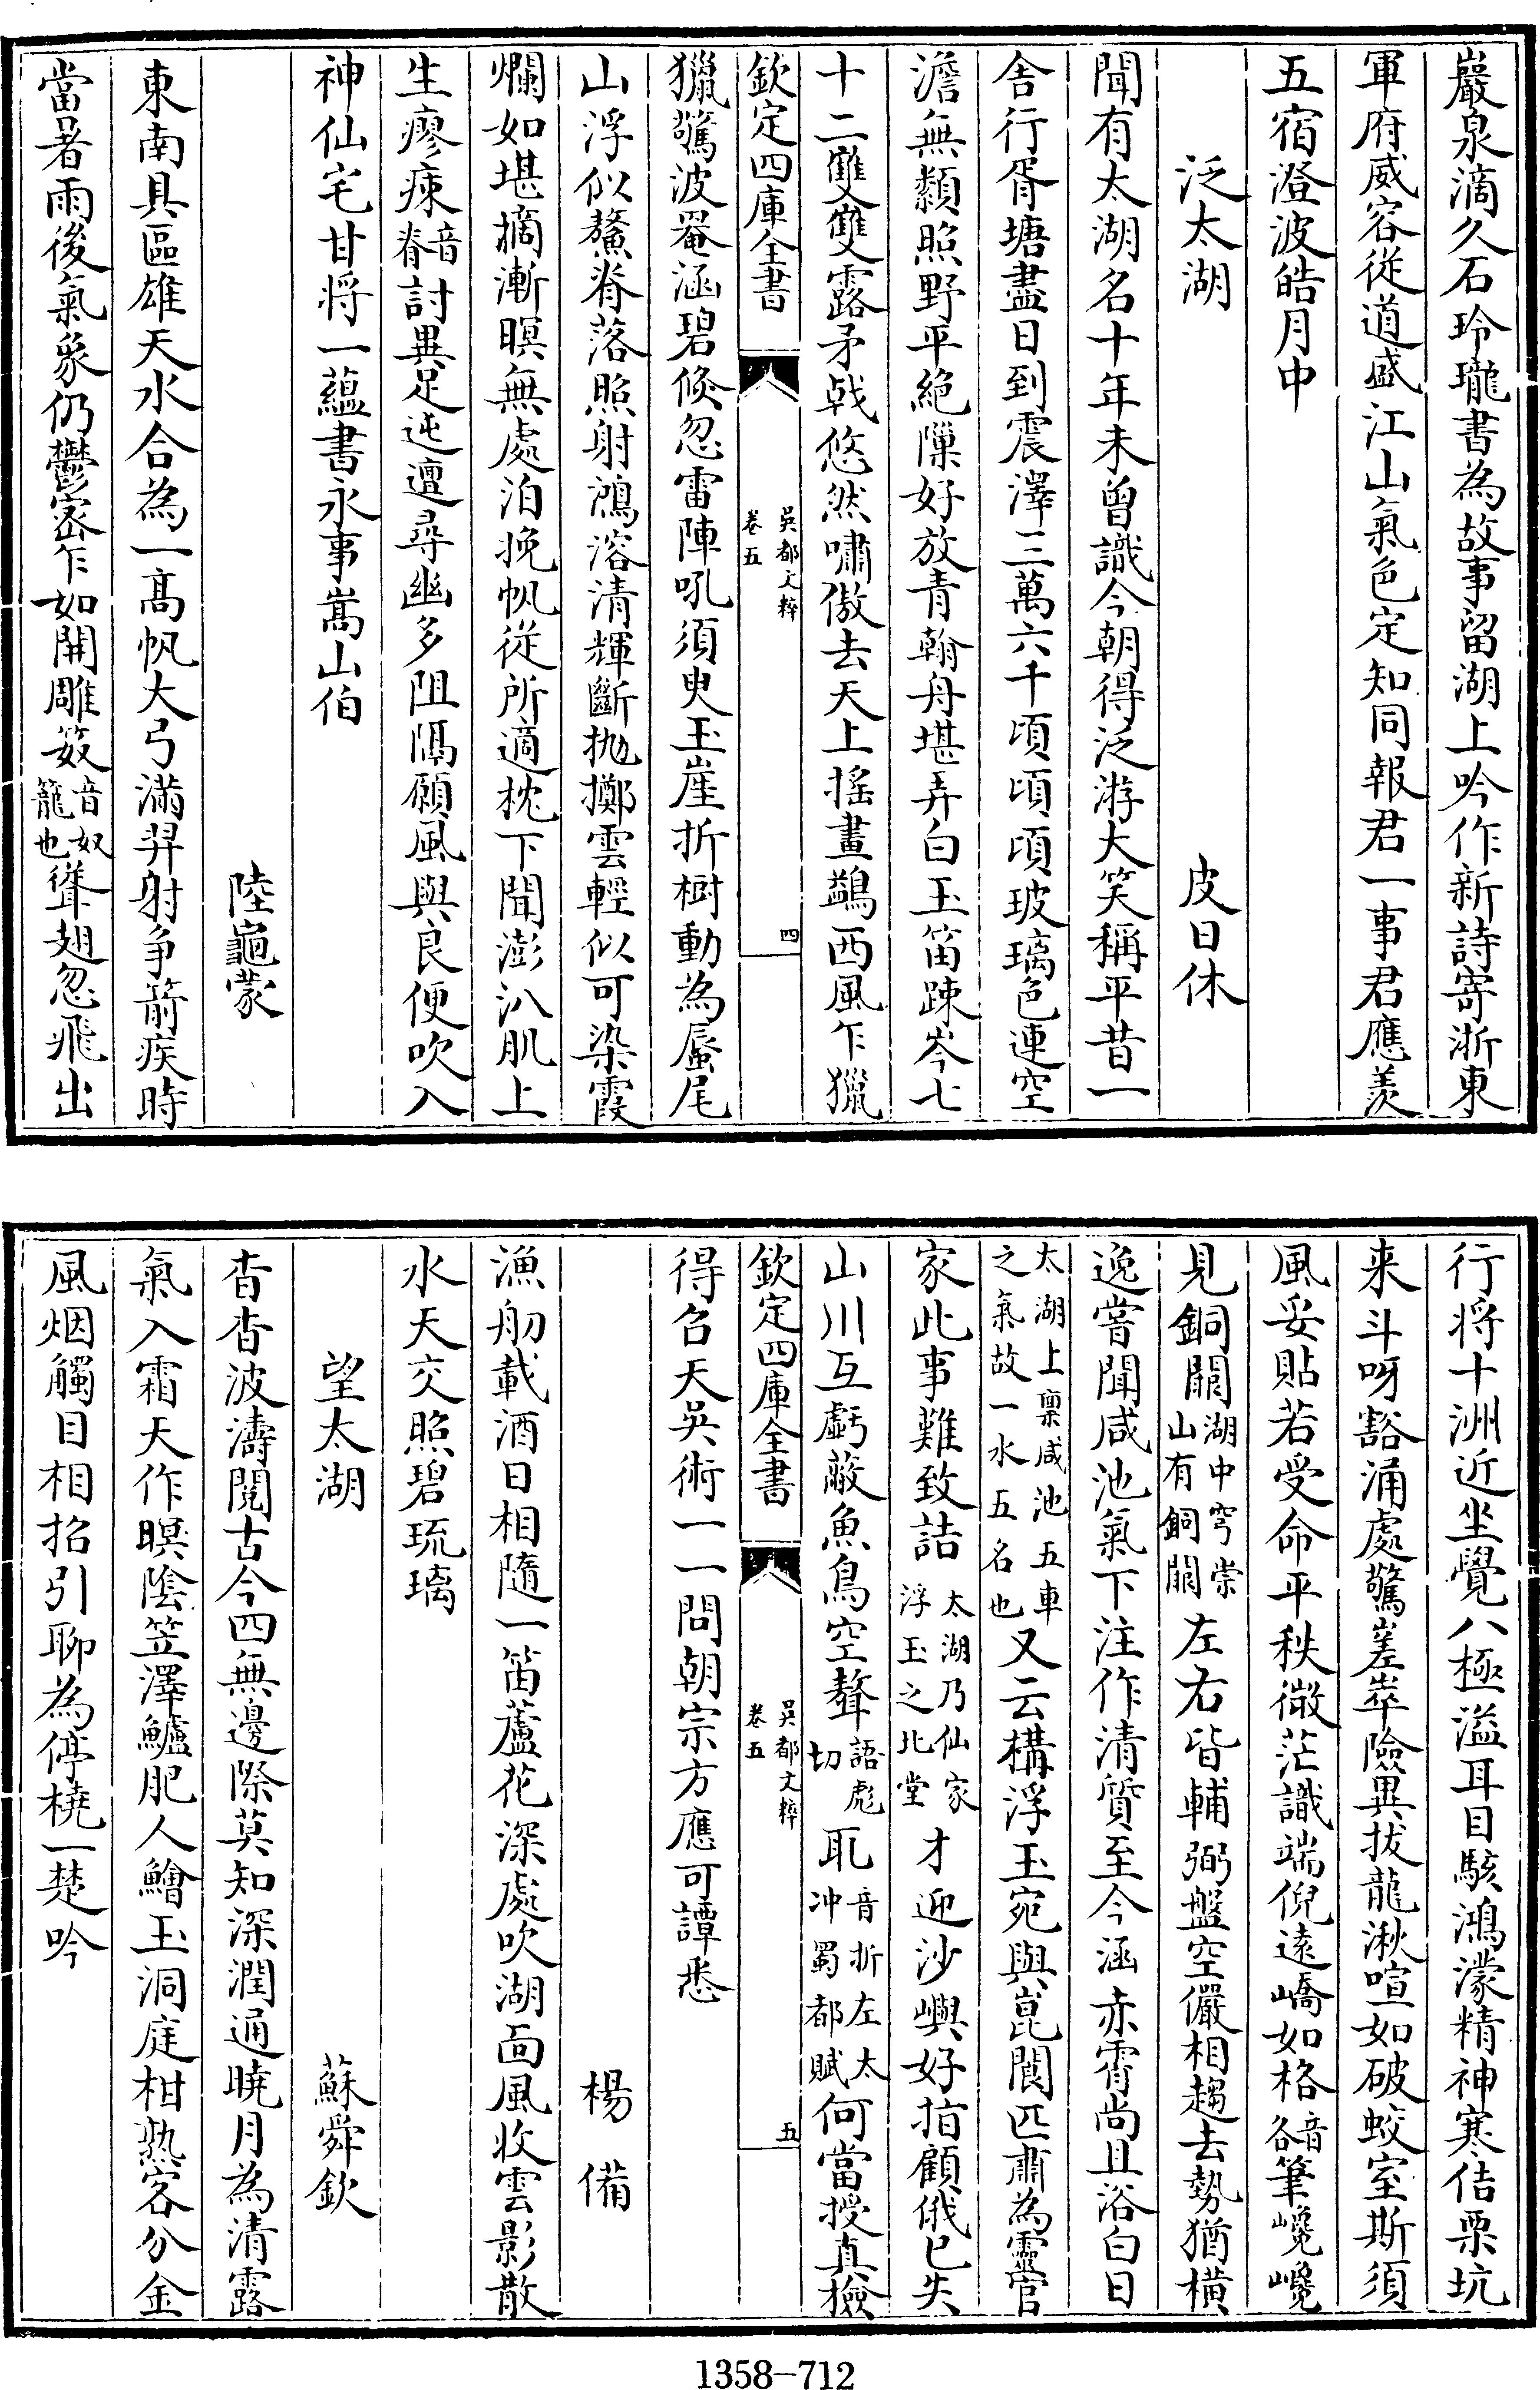 巖泉滴久石玲瓏書為故事留湖上吟作新詩寄浙東
軍府威容從道盛江山氣色定知同報君一事君應羨
五宿澄波皓月中
泛太湖 皮日休
聞有太湖名十年未曾識今朝得泛游大笑稱平昔一
舍行胥塘盡日到震澤三萬六千頃頃頃玻璃色連空
澹無纇照野平絶隟好放青翰舟堪弄白玉笛踈岑七
十二雙雙露矛戟悠然嘯傲去天上摇畫鷁西風乍獵
欽定四庫全書 吳都文粹 卷五 四
獵驚波罨涵碧倐忽雷陣吼須臾玉崖折樹動為蜃尾
山浮似鰲脊落照射鴻溶清輝斷抛擲雲輕似可染霞
爛如堪摘漸暝無處泊挽帆從所適枕下聞澎汃肌上
生瘮㾕音脊討異足迍邅尋幽多阻隔願風與良便吹入
神仙宅甘將一蘊書永事嵩山伯
陸龜蒙
東南具區雄天水合為一高帆大弓滿羿射争箭疾時
當暑雨後氣象仍鬱密乍如開雕笯音奴籠也聳翅忽飛出
行將十洲近坐覺八極溢耳目駭鴻濛精神寒佶栗坑
来斗呀豁涌處驚嵳崒險異拔龍湫喧如破蛟室斯須
風妥貼若受命平秩微茫識端倪遠嶠如格音各筆巉巉
見銅闗湖中穹崇山有銅闗左右皆輔弼盤空儼相趨去勢猶橫
逸嘗聞咸池氣下注作清質至今涵赤霄尚且浴白日
太湖上稟咸池五車之氣故一水五名也又云構浮玉宛與崑閬匹肅為靈官
家此事難致詰太湖乃仙家浮玉之北堂才迎沙嶼好指顧俄已失
山川互虧蔽魚鳥空聱語彪切耴音折左太冲蜀都賦何當授真檢
欽定四庫全書 吳都文粹 卷五 五
得召天吳術一一問朝宗方應可譚悉
楊備
漁舠載酒日相隨一笛蘆花深處吹湖面風收雲影散
水天交照碧琉璃
望太湖 蘇舜欽
杳杳波濤閱古今四無邊際莫知深潤通曉月為清露
氣入霜天作暝陰笠澤鱸肥人鱠玉洞庭柑熟客分金
風烟觸目相招引聊為停橈一楚吟
1358-712